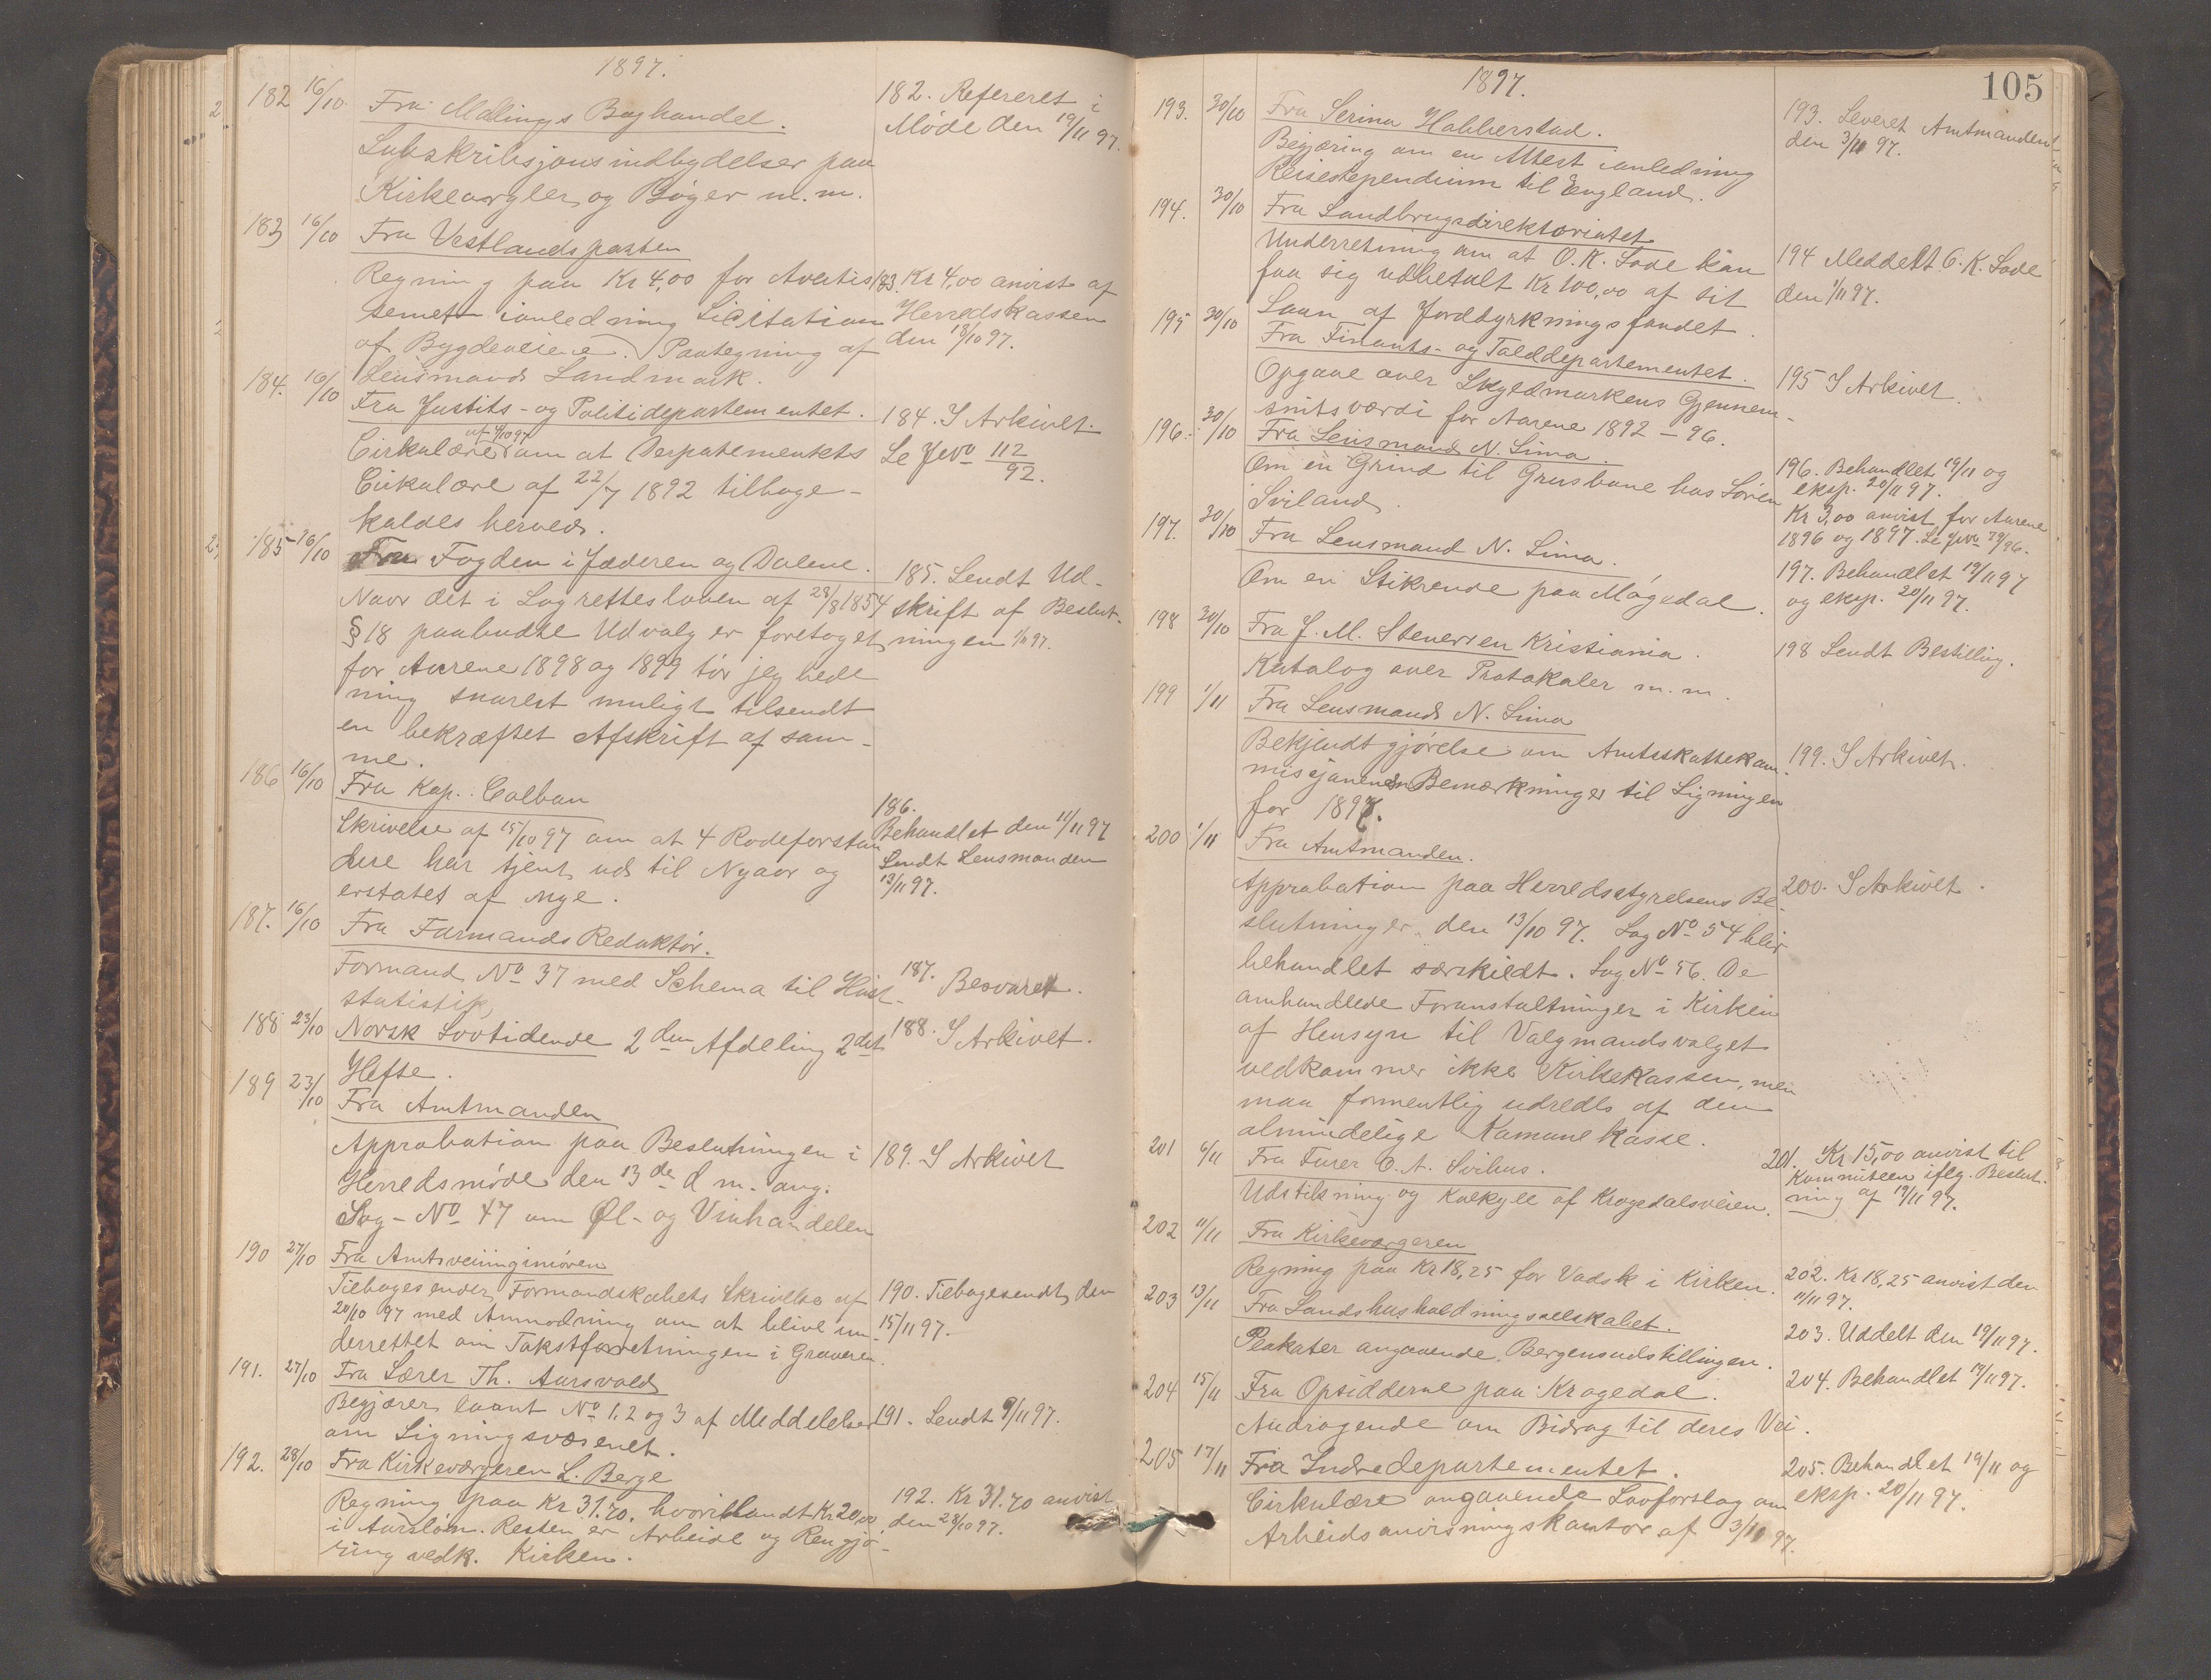 1897.
182 16/10 Fra Mallings Boghandel.
Subskribsjonsindbydelser paa
Kirkeorgler og Bøger m.m.
182. Refereret i
Møde den 19/11 97.
183 16/10 Fra Vestlandsposten
Regning paa Kr 4,00 for Avertis
sement ianledning Licitation
af Bygdeveiene. Paategning af
Lensmand Landmark.
183. Kr 4,00 anvist af
Herredskassen
den 18/10 97.
184. 16/10 Fra Justits- og Politidepartementet.
af 9/10 97
Cirkulære om at Derpatementets
Cirkulære af 22/7 1892 tilbage-
kaldes herved.
184. I Arkivet.
Se Jevo 112/92.
185 16/10 Fra Fogden i Jæderen og Dalene.
Naar det i Lagretteloven af 28/8 1854
§ 18 paabudte Udvalg er foretaget
for Aarene 1898 og 1899 tør jeg bede
ning snarest muligt tilsendt
en bekræftet Afskrift af sam-
me.
185. Sendt Ud-
skrift af Beslut-
ningen 1/11 97.
186 16/10 Fra Kap. Calban
Skrivelse af 15/10 97 om at 4 Rodeforstan
dere har tjent ud til Nyaar og
erstates af nye.
186.
Behandlet den 11/11 97
Sendt Lensmanden
13/11 97.
187. 16/10 Fra Farmands Redaktør.
Formand No 37 med Schema til
statistik,
187. Besvaret.
188 23/10 Norsk Lovtidende 2den Afdeling 2det
Hefte.
188. I Arkivet.
189 23/10 Fra Amtmanden
Approbation paa Beslutningen i
Herredsmøde den 13de d m. ang.
Sag-No 47 om Øl- og Vinhandelen
189. I Arkivet
190 27/10 Fra Amtsveiingeniøren
Tilbagesender Formandskabets Skrivelse af
20/10 97 med Anmodning om at blive un-
derrettet om Takstforretningen i Graveren.
190. Tilbagesendt den
15/11 97.
191. 27/10 Fra Lærer Th. Aarsvold
Begjærer laant No 1, 2 og 3 af Meddelelser
om Ligningsvæsenet.
191. Sendt 9/11 97.
192. 28/10 Fra Kirkeværgeren L. Berge
Regning paa Kr 31.70. hvoriblandt Kr 20,00
i Aarsløn. Resten er Arbeide og Rengjø-
ring vedk. Kirken.
192. Kr 31.70 anvist
den 28/10 97.
105
1897.
193. 30/10 Fra Serina Habberstad.
Begjæring om en Attest ianledning
Reisestependium til England.
193. Leveret Amtmanden
den 3/11 97.
194. 30/10 Fra Landbrugsdirektoriatet
Underretning om at O. K. Sode kan
faa sig udbetalt Kr 100,00 af sit
Laan af Jorddyrkningsfondet.
194 Meddelt O. K. Sode
den 1/11 97.
195 30/10 Fra Finants- og Tolddepartementet.
Opgave over Skyldmarkens Gjennem-
snitsværdi for Aarene 1892 - 96.
195 I Arkivet.
196. 30/10 Fra Lensmand N. Lima.
Om en Grind til Grusbane hos Søren
Sviland.
196. Behandlet 19/11 og
eksp. 20/11 97.
Kr 3,00 anvist for Aarene
1896 og 1897. Se Jevo 79/96.
197. 30/10 Fra Lensmand N. Lima.
Om en Stikrende paa Møgedal.
197. Behandlet 19/11 97
og eksp. 20/11 97.
198 30/10 Fra J. M. Stenersen Kristiania.
Katalog over Protokoler m.m.
198 Sendt Bestilling.
199 1/11 Fra Lensmand N. Lima
Bekjendtgjørelse om Amtsskattekom-
missjonens Bemærkninger til Ligningen
for 1897.
199. I Arkivet.
200 1/11 Fra Amtmanden.
Approbation paa Herredsstyrelsens Be
slutninger den 13/10 97. Sag No 54 blir
behandlet særskildt. Sag No 56. De
omhandlede Foranstaltninger i Kirken
af Hensyn til Valgmandsvalget
vedkommer ikke Kirkekassen, men
maa formentlig udredes af den
almindelige Komunekasse.
200. I Arkivet.
201 6/11 Fra Furer O. A. Svihus.
Udstikning og Kalkyle af Krogedalsveien.
201. Kr 15,00 anvist til
Kommiteen iflg. Beslut-
ning af 19/11 97.
202 11/11 Fra Kirkeværgeren
Regning paa Kr 18,25 for Vadsk i Kirken.
202. Kr 18,25 anvist den
11/11 97.
203 13/11 Fra Landshusholdningsselskabet.
Plakater angaaende Bergensudstillingen.
203. Uddelt den 19/11 97.
204 15/11 Fra Opsidderne paa Krogedal.
Andragende om Bidrag til deres Vei.
204. Behandlet 19/11 97.
205 17/11 Fra Indredepartementet.
Cirkulære angaaende Lovforslag om
Arbeidsanvisningskontor af 3/11 97.
205. Behandlet 19/11 og
eksp. 20/11 97.